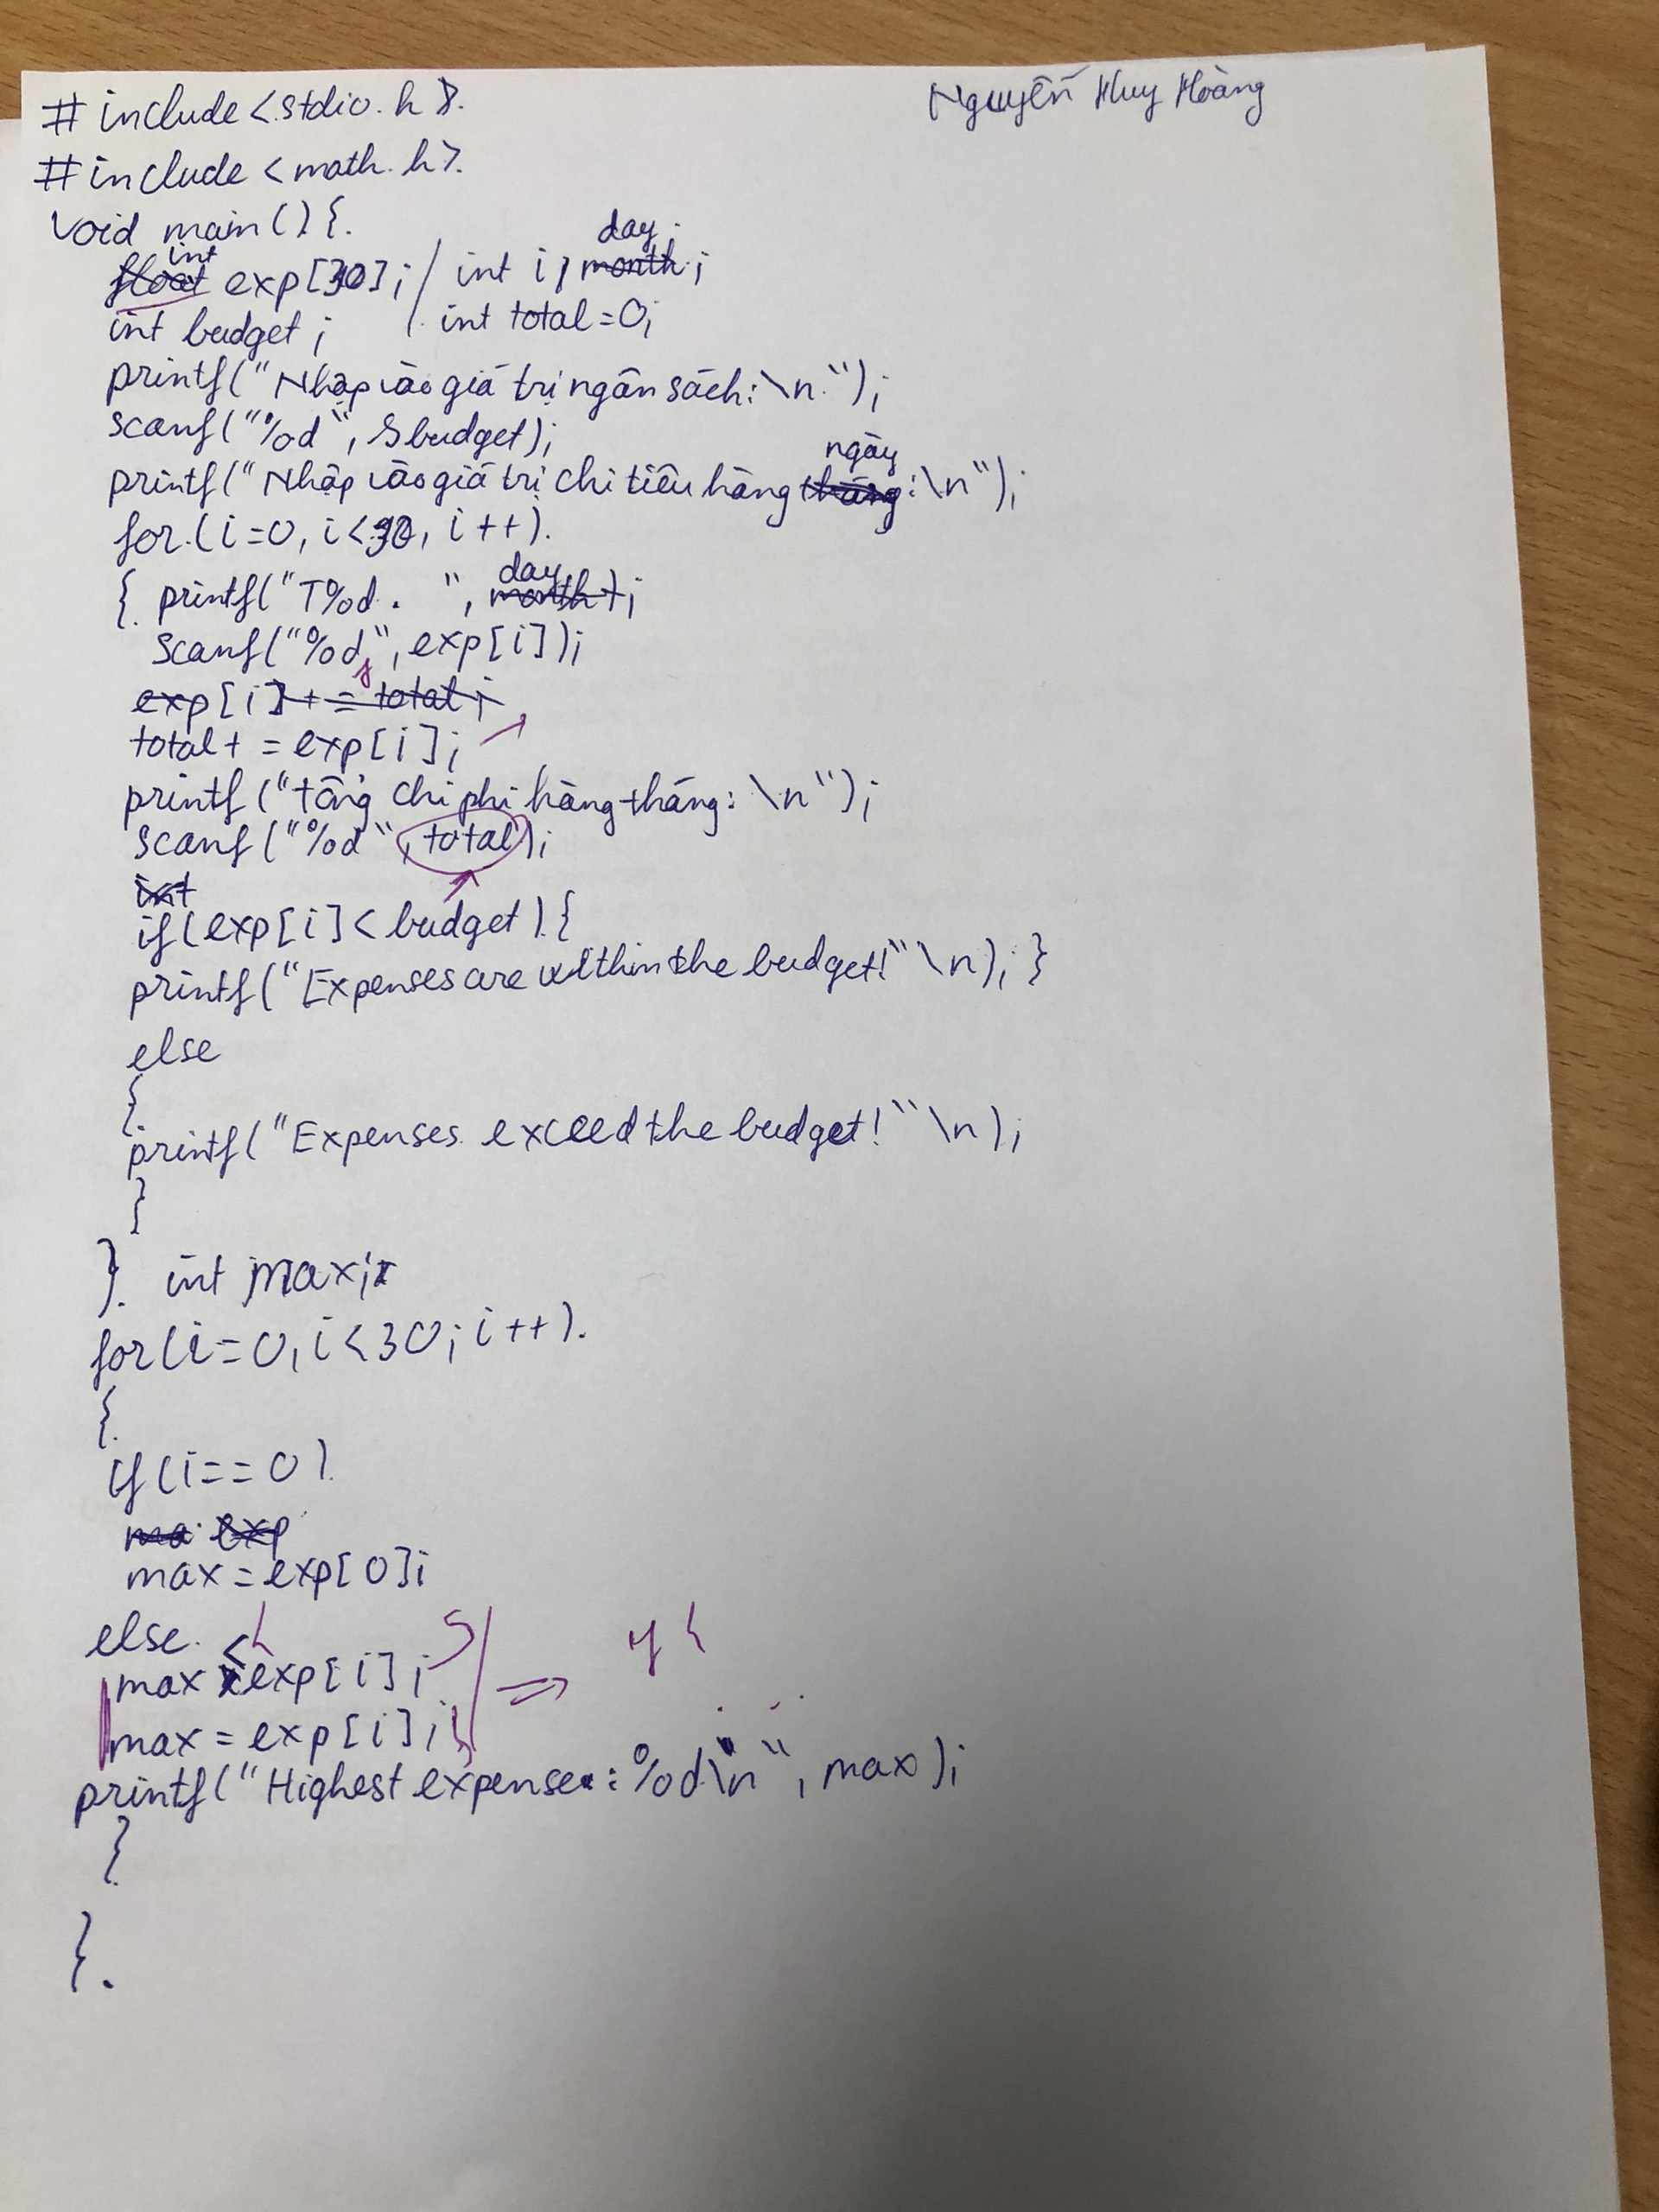 Nguyễn Huy Hoàng
#include <stdio.h>.
#include <math.h>.
void main(){.
int day.
float exp[30]; / int i, month;
int budget; / int total=0;
printf("Nhập vào giá trị ngân sách:\n");
scanf("%d", &budget);
ngày
printf("Nhập vào giá trị chi tiêu hàng tháng:\n");
for(i=0, i<30, i++).
day
{ printf("T%d. ", month);
scanf("%d", exp[i]);
exp[i]+=total;
total+=exp[i];
printf("tổng chi phí hàng tháng: \n");
scanf("%d", total);
int
if(exp[i]<budget){
printf("Expenses are within the budget!"\n); }
else
{
printf("Expenses exceed the budget!"\n);
}
}. int max;
for(i=0, i<30; i++).
{
if(i==0).
ma exp
max=exp[0];
else.
max<exp[i];
max=exp[i];
printf("Highest expense: %d\n", max);
}
}.